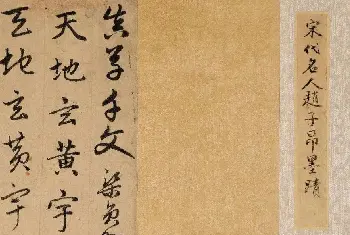 宋代名人趙子昂墨蹟
真草千文
天地玄黃宇
天地玄黃宇